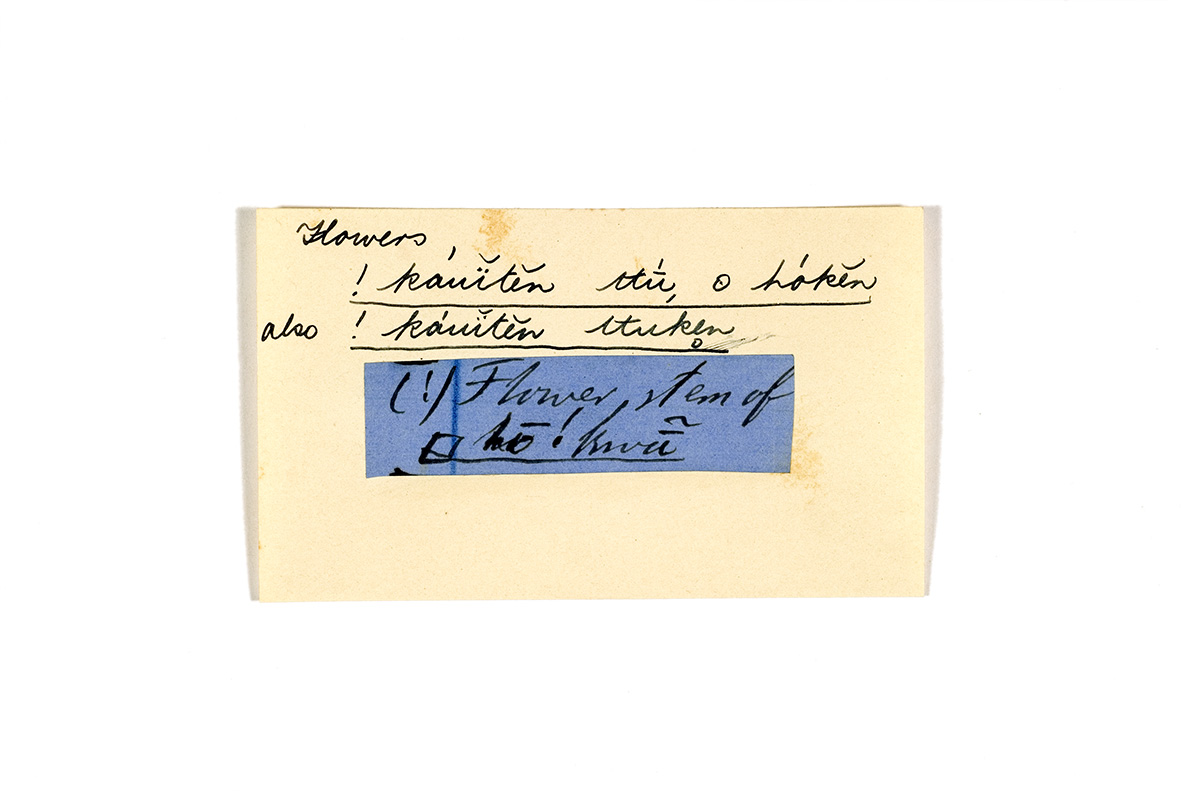 Flowers,
! káuĭtĕn ttú, o hókĕn
also ! káuĭtĕn ttuken
(!) Flower stem of
hō ! kwā̃